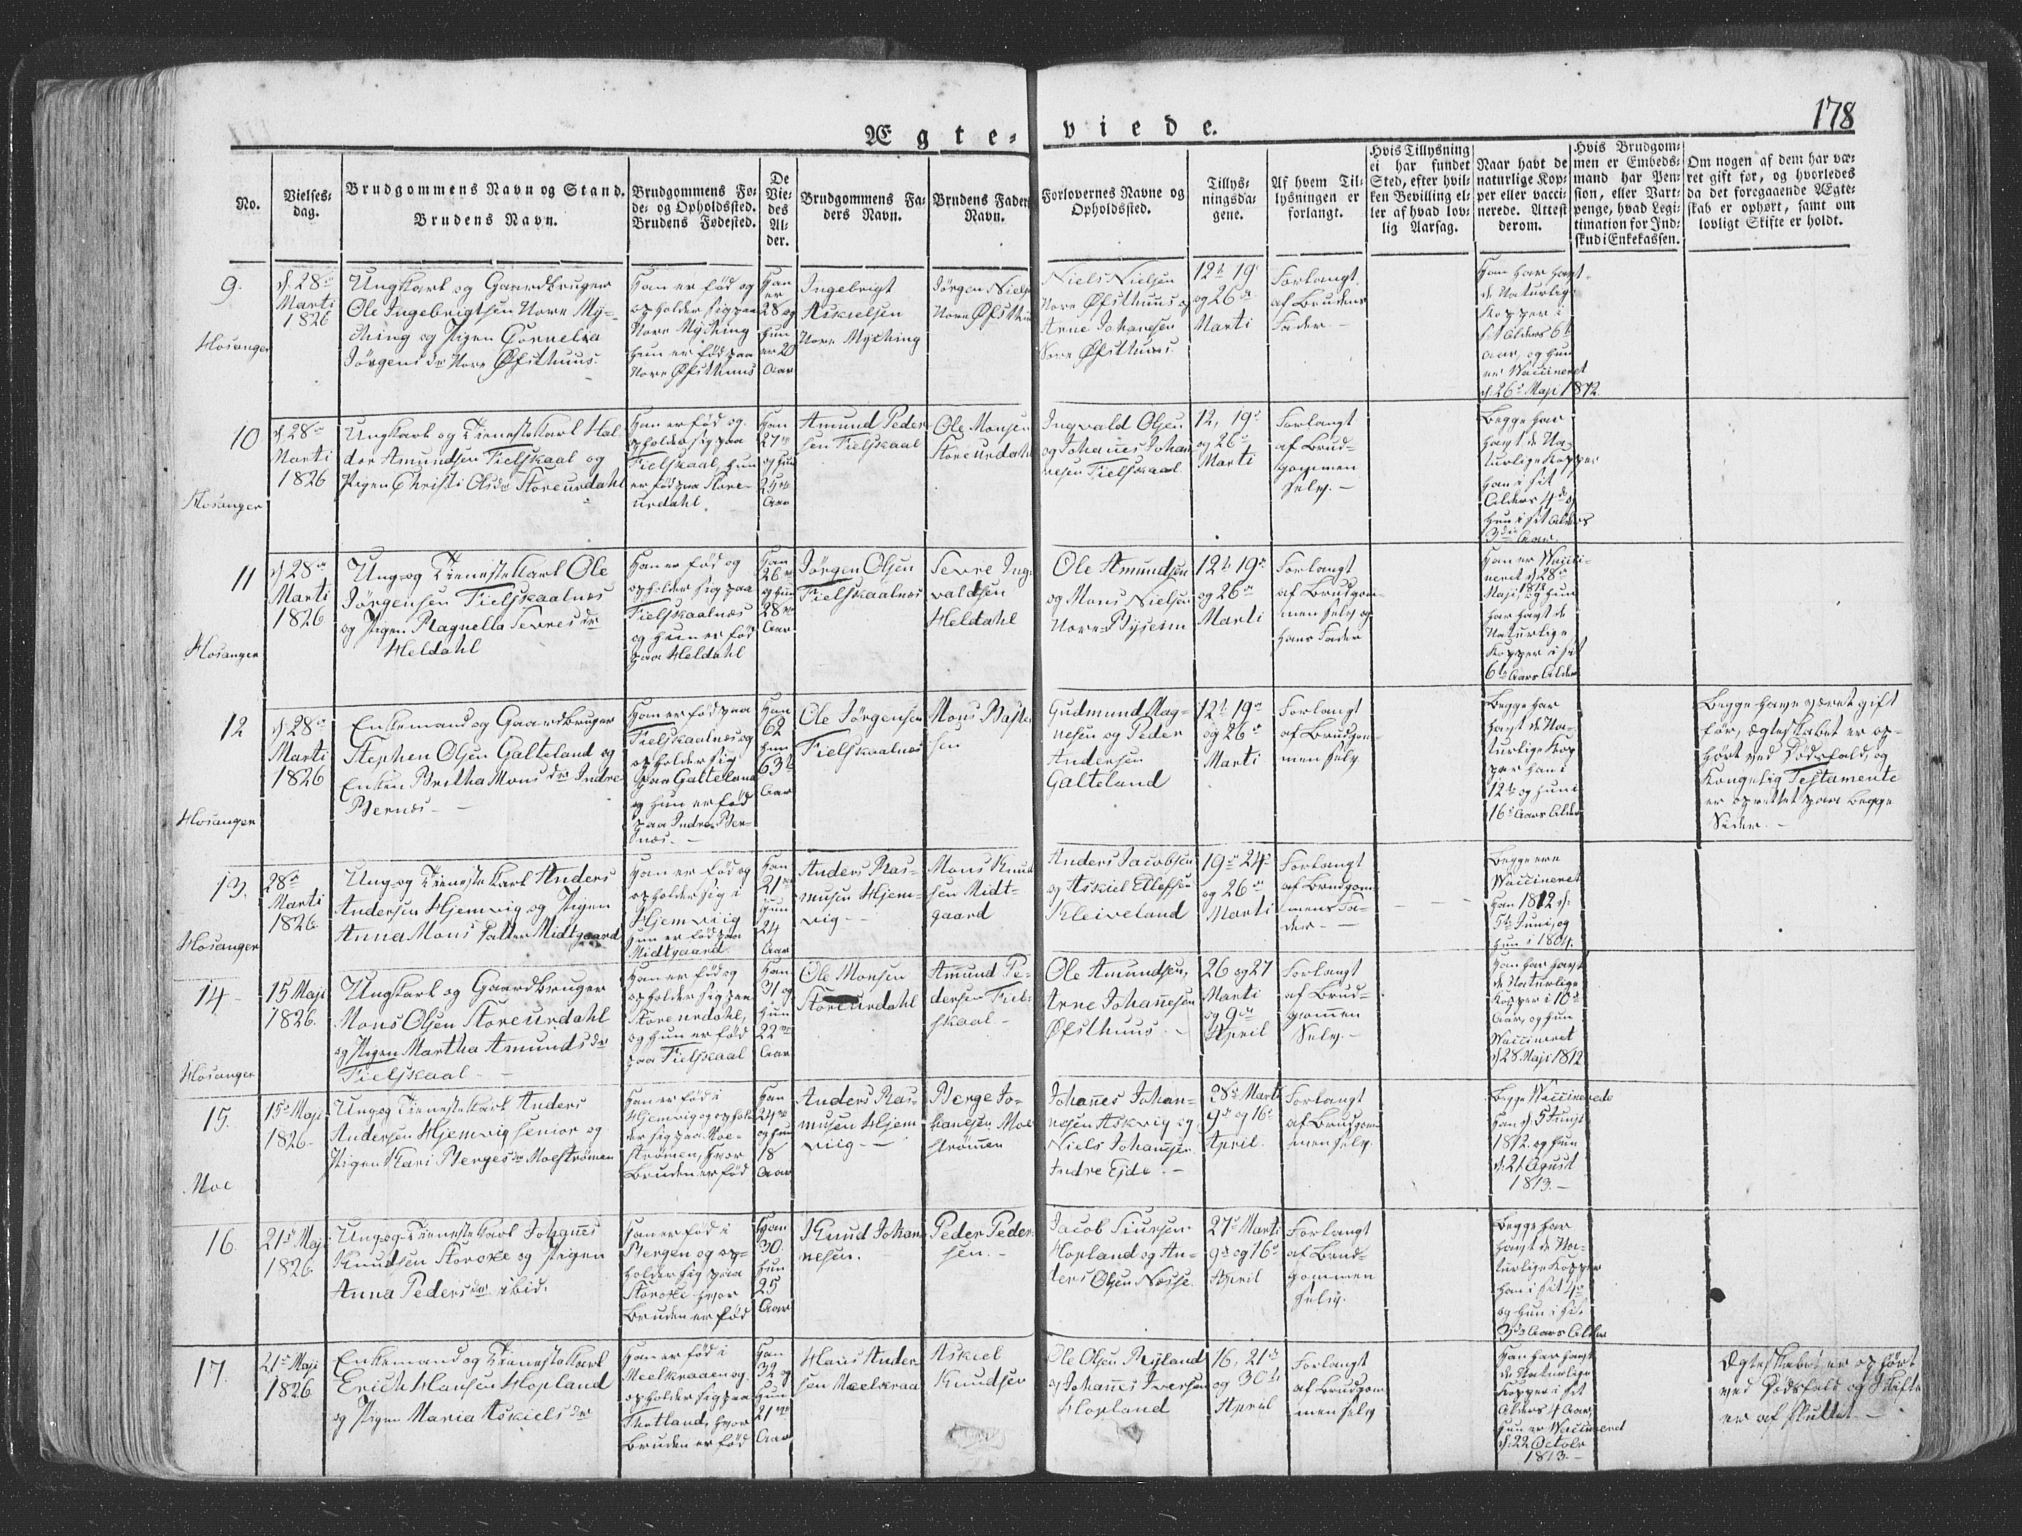 178
Ægte-viede.
No.
Vielses-
dag.
Brudgommens Navn og Stand.
Brudens Navn.
Brudgommens Fø-
de- og Opholdssted.
Brudens Fødested.
De
Vie-
des
Al-
der.
Brudgommens Fa-
ders Navn.
Brudens Faders
Navn.
Forlovernes Navne og
Opholdssted.
Tillys-
ningsda-
gene.
Af hvem Til-
lysningen er
forlangt.
Hvis Tillysning
ei har fundet
Sted, efter hvil-
ken Bevilling el-
ler af hvad lov-
lig Aarsag.
Naar havt de
naturlige Kop-
per eller vacci-
nerede. Attest
derom.
Hvis Brudgom-
men er Embeds-
mand har Pen-
sion, eller Vart-
penge, hvad Legi-
timation for Ind-
skud i Enkekassen.
Om nogen af dem har væ-
ret gift før, og hvorledes
da det foregaaende Ægte-
skab er ophørt, samt om
lovligt Skifte er holdt.
9.
Hosanger
d. 28de
Marti
1826
Ungkarl og Gaardbruger
Ole Ingebrigtsen Nore My-
ching og Pigen Cornelia
Jörgensdr Nore Øfsthuus.
Han er fød og
opholder sig paa
Nore Myching
hun er fød paa
Nore Øfsthuus
Han
er
28 og
hun
er 20
Aar
Ingebrigt
Askielsen
Nore Myching
Jörgen Niels
Nore Øfsthuu
Niels Nielsen
Nore Øfsthuus og
Arne Johansen
Nore Øfsthuus.
12te 19
og 26de
Marti
Forlangt
af Brudens
Fader –
Han har havt
de Naturlig
Kopper i
s. Alders 6te
Aar, og hun
er Vaccineret
d. 26de Maji 1812
10
Hosanger
d. 28de
Marti
1826
Ungkarl og Tienestekarl Hal-
dor Amundsen Fielskaal og
Pigen Christi Olsdr Storeurdahl
Han er fød og
opholder sig paa
Fielskaal, hun
er fød paa Store-
urdahl.
Han
27
og hun
24
Aar
Amund Peder
sen Fielskaal
Ole Monsen
Storeurdahl
Ingvald Olsen
og Johannes Johan
nesen Fielskaal.
12, 19de
og 26de
Marti
Forlangt
af Brud-
gommen
selv. –
Begge har
havt de Na-
turlige Kopper
han i sit
Alders 4de og
hun i sit Alders
3die Aar.
11
Hosanger
d 28de
Marti
1826
Ung og Tienestekarl Ole
Jörgensen Fielskaalnes
og Pigen Ragnella Severesdr
Heldahl
Han er fød og
opholder sig paa
Fielskaalnæs
og hun er fød
paa Heldahl
Han
26
og hun
28
Aar
Jörgen Olsen
Fielskaalnæs
Sevre Ing
valdsen
Heldahl
Ole Amundsen
og Mons Nielsen
Nore-Bysem
12te 19de
og 26de
Marti
Forlangt
af Brudgom-
men selv og
hans Fader
Han er Vacci-
neret d. 28de
Maji 1812 og hun
har havt de
Naturlige
Kopper i sit
6te Aars Alder
12
Hosanger
d. 28de
Marti
1826
Enkemand og Gaardbruger
Stephen Olsen Galteland og
Enken Britha Monsdr Indre
Bernæs. –
Han er fød paa
Fielskaalnæs og
opholder sig
paa Galteland
og hun er fød
paa Indre Ber-
næs. –
Han
62
hun
63
Aar
Ole Jörgensen
Fielskaalnæs
Mons
sen
Gudmund Mag-
nesen og Peder
Andersen
Galteland
12te 19de
og 26de
Marti
Forlangt
af Brudgom-
men selv
Begge har
havt de Na-
turlige Kop
per han i
12te og hun i
16de Aars Alder
Begge have været gift
før, ægteskabet er op-
hørt ved Dødsfald, og
Kongelig Testamente
er oprettet paa begge
Sider. –
13.
Hosanger
28de
Marti
1826.
Ung og Tienestekarl Anders
Andersen Hjemvig og Pigen
Anna Mons Datter Midtgaard
Han er fød og
opholder sig i
Hjemviig
hun er fød paa
Midtgaard
Han
21
hun
24
Aar
Anders Ras-
musen Hjem-
vig –
Mons Knud
sen Midt-
gaard
Anders Jacobsen
og Askiel Ellefsen
Kleiveland
19de 24de
og 26de
Marti
Forlangt
af Brudgom
mens Fa-
der. –
Begge ere
Vaccineret
han 1812 d.
5te Juni, og
hun i 1804.
14 –
Hosanger
15 Maji
1826.
Ungkarl og Gaardbruger
Mons Olsen Storeurdahl
og Pigen Martha Amundsdr
Fielskaal –
Han er fød og
opholder sig paa
Storeurdahl,
og hun er fød
paa Fielskaal
Han
31 og
hun
22
Aar
Ole Monsen
Storeurdahl
Amund Pe-
dersen Fiel-
skaal –
Ole Amundsen,
Arne Johannesen
Øfsthuus. –
26 og 27
Marti
og 9de
April
Forlangt
af Brud-
gommen
Selv. –
Han har havt
de Naturlige
Kopper i 10de
Aar, og hun
Vaccineret
d. 28 Maji 1812
15.
Moe
15de Maji
1826 –
Ung og Tienestekarl Anders
Andersen Hjemvig senior og
Pigen Kari Bergesdr Moestrømen
Han er fød i
Hjemvig og ophol-
der sig paa Moe-
strømen, hvor
Bruden er fød
Han
24
og hun
18
Aar
Anders Ras-
musen Hjem
viig –
Berge Jo-
hanesen Moe
strømmen
Johannes Johan-
nesen Askvig og
Niels Johannsen
Indre Ejde. –
28de Marti
9de og 16de
April.
Forlangt
af Brudgom
men selv.
Begge Vaccinerede
han d. 5 Junji
1812. og hun
d. 21 Agust
1813. –
16.
21de Maji
1826
Ung og Tienestekarl Johannes
Knudsen Storoxe og Pigen
Anna Pedersdr ibid.
Han er fød i
Bergen og op-
holder sig paa
Storoxe hvor
Bruden er fød
Han
30.
hun
25
Aar
Knud Johan
nesen.
Peder Peder-
sen. –
Jacob Siursen
Hopland og An-
ders Olsen Nesse.
27de Marti
9de og 16de
April
Forlangt
af Brud-
gommen
selv.
Begge har
havt de Na-
turlige Kopper
han i sit 4de
og hun i sit
3die Aars Alder
17.
21de Maji
1826
Enkemand og Tienestekarl
Erich Hansen Hopland
og Pigen Maria Askielsdr
Han er fød i
Meelkraaen og
opholder sig paa
hvor
Bruden er fød
Han
32 og
hun
21
Aar
Hans Ander
sen Meelkraa
Askiel
Knudsen
Ole Olsen Byland
og Johannes Iversen
Hopland
16, 21de
og 30te
April
Forlangt
af Brudgom
men selv
Han har havt
de Naturlige
Kopper i sit
Alders 4 Aar,
hun er Vaccineret
d. 22 Octobr
1813. –
Ægteskabet er ophørt
ved Dødsfald og Skifte
er af sluttet –